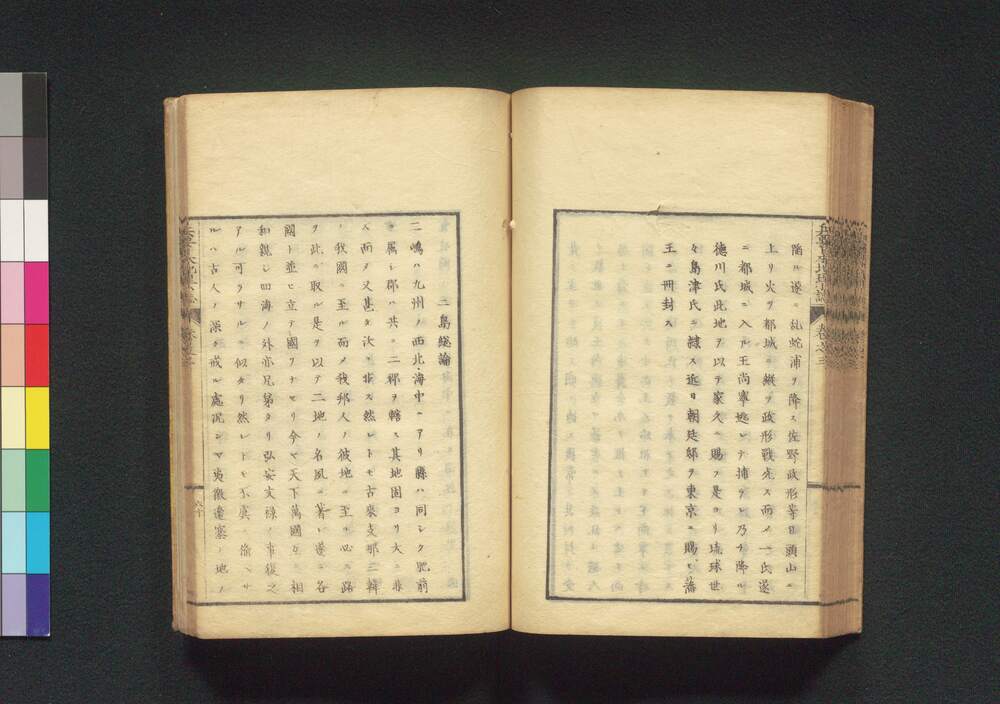 陥ル遂ニ乱蛇浦ヲ降ス佐野政形等日頭山ニ
上リ火ヲ都城ニ縦ツ政形戦死ス而メ一氏遂
ニ都城ニ入ル王尚寧逃レテ捕ヲレ乃チ降ル
徳川氏此地ヲ以テ家久ニ賜フ是ヨリ琉球世
々島津氏ニ隷ス近日朝廷邸ヲ東京ニ賜ヒ藩
王ニ冊封ス
二島総論
二嶋ハ九州ノ西北海中ニアリ縣ハ同シク肥前
ニ属シ郡ハ共ニ二郡ヲ轄ス其地固ヨリ大ニ非
ス而メ又甚タ沃ニ非ス然レトモ古来支那三韓
ノ我國ニ至ル而メ我邦人ノ彼地ニ至ル必ス路
ヲ此ニ取ル是ヲ以テ二地ノ名夙ニ著ル邊ニ各
國ト並ヒ立テ國ヲナセリ今ヤ天下萬國互ニ相
和親シ四海ノ外亦兄弟タリ弘安文禄ノ事復之
アル可ラサルニ似タリ然レトモ不虞ニ備ヘサ
ルハ古人ノ深ク戒ル處況ンヤ夷徼邊塞ノ地ノ
兵要日本地理小誌
巻之三
六十